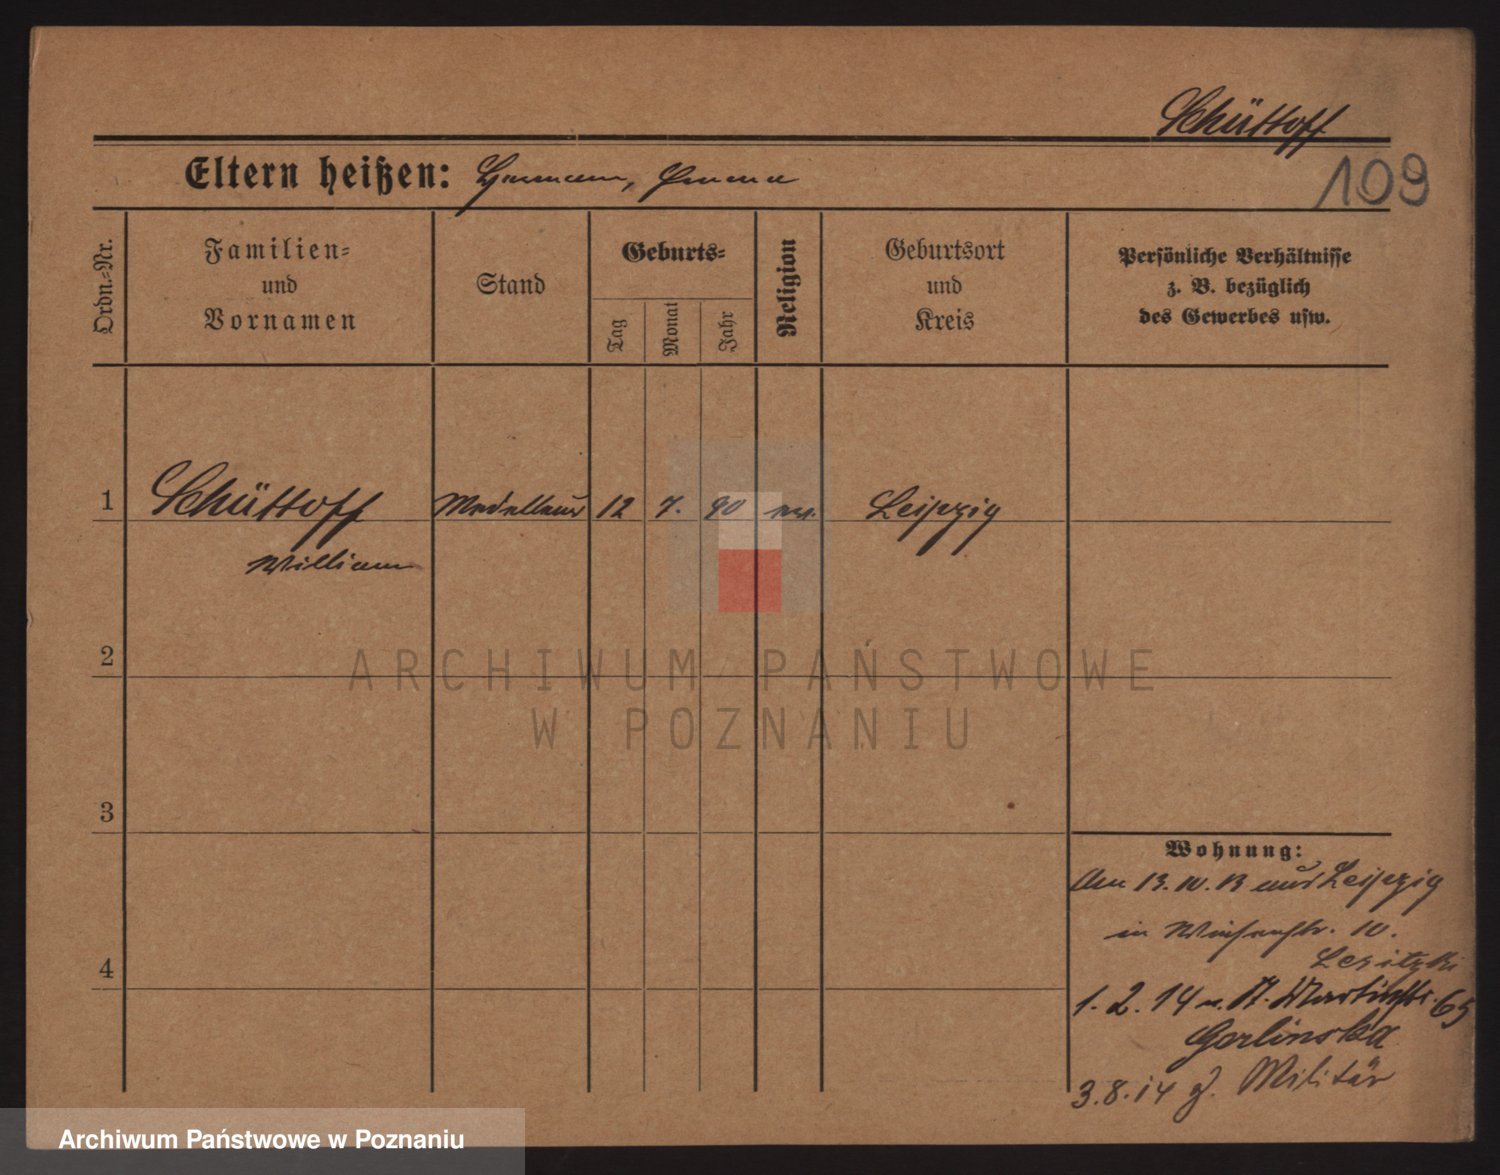 Schüttoff
109
Eltern heißen: Hermann, Emma
Ordn.-Nr.
Familien- und Vornamen
Stand
Geburts-
Tag
Monat
Jahr
Religion
Geburtsort und Kreis
Persönliche Verhältnisse
z. B. bezüglich
des Gewerbes usw.
1 Schüttoff 12 7. 90 ev. Leipzig
William
2
ARCHIWUM PAŃSTWOWE
W POZNANIU
3
Wohnung:
Am 13. 10. 13 aus Leipzig
in 10.
4
1. 2. 14 n. St. Martinstr. 65
Gorlinska
3.8.14 z. Militär
Archiwum Państwowe w Poznaniu